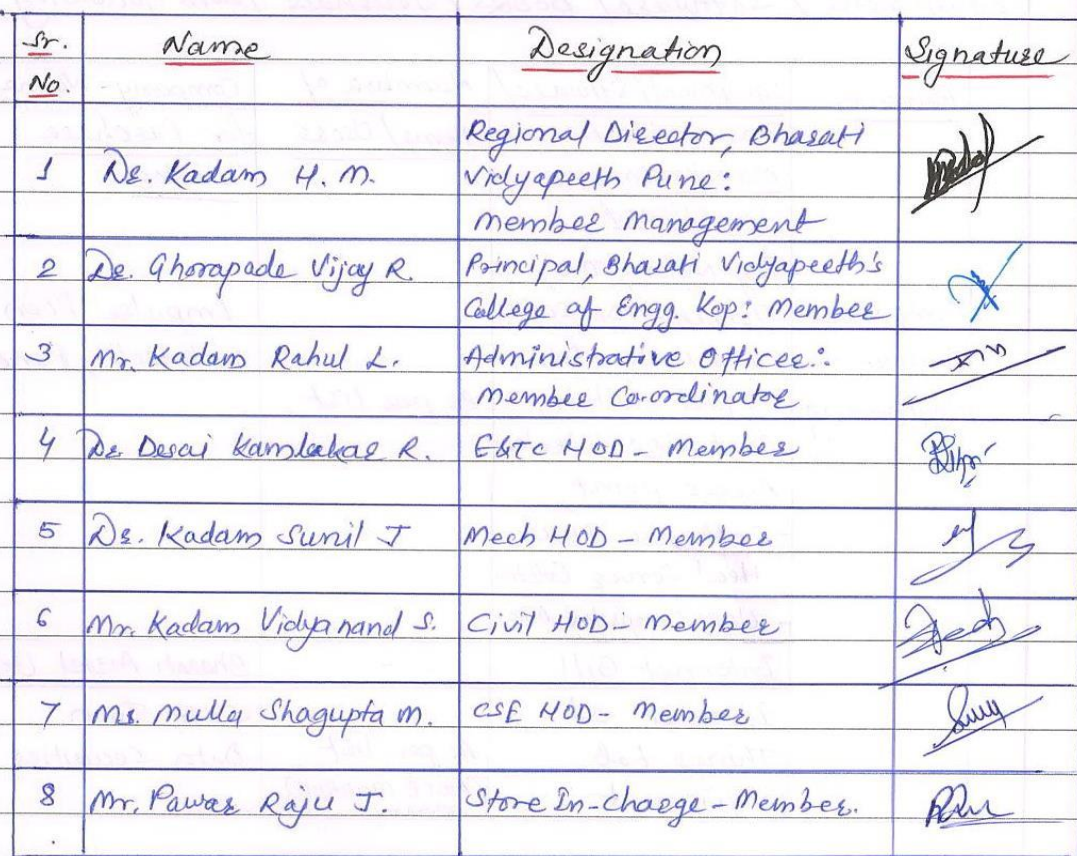 Sr. No. Name Designation Signature
1 Dr. Kadam H. M. Regional Director, Bharati
Vidyapeeth Pune:
Member Management
2 Dr. Ghorapade Vijay R. Principal, Bharati Vidyapeeth's
College of Engg. Kop: Member
3 Mr. Kadam Rahul L. Administrative Officer:
Member Co-ordinator
4 Dr. Desai Kamlakar R. E&TC HOD - Member
5 Dr. Kadam Sunil J Mech HOD - Member
6 Mr. Kadam Vidyanand S. Civil HOD - Member
7 Ms. Mulla Shagupta M. CSE HOD - Member
8 Mr. Pawar Raju J. Store In-Charge - Member.